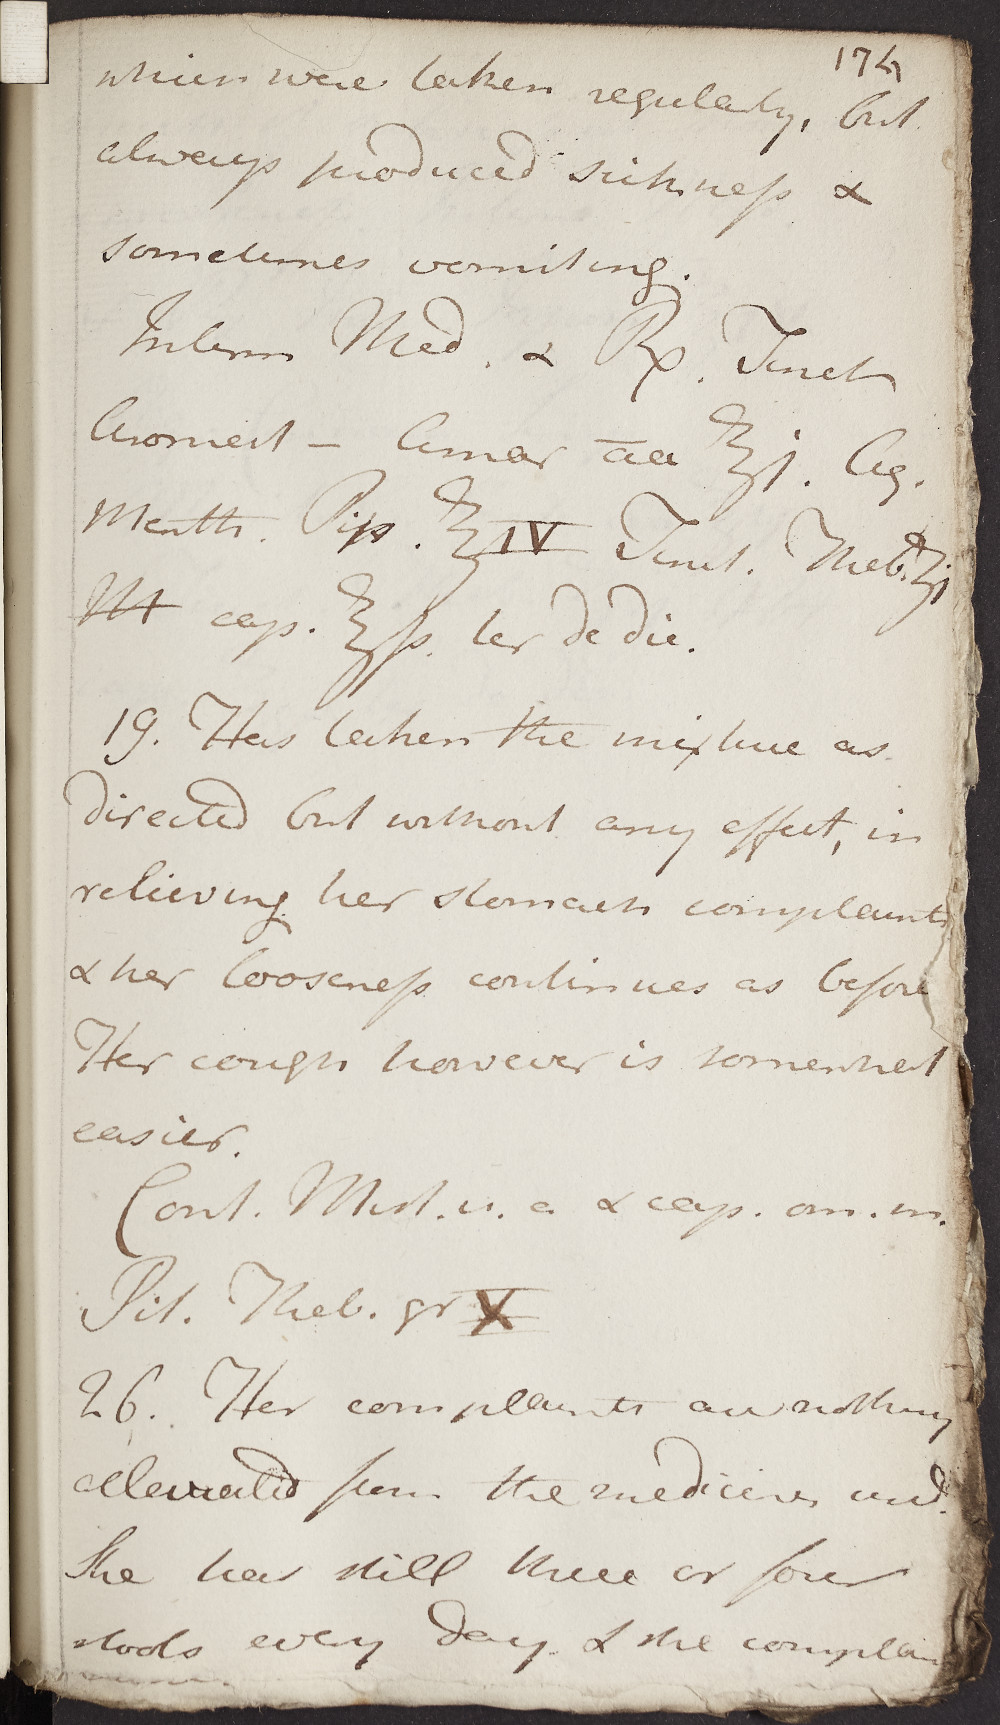 174
which were taken regularly, but
always produced sickneſs &
sometimes vomiting.
Interm Med. & Rx. Tinct
Aromat - Amar āā ℥j. Aq.
Menth. Pip. ℥IV Tinct. Theb. ʒj
M cap. ℥ſs. ter de die.
19. Has taken the mixture as
directed but without any effect, in
relieving her stomach complaints
& her looseneſs continues as before
Her cough however is somewhat
easier.
Cont. Mist. u. a & cap. om. n.
Pil. Theb. gr X
26. Her complaints are nothing
alleviated from the medicines and.
She has still three or four
stools every day & she complain